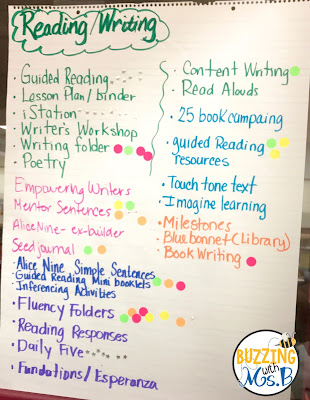 Reading/Writing
Guided Reading
Lesson Plan/binder
iStation
Writer's Workshop
Writing folder
Poetry
Empowering Writers
Mentor Sentences
Alice Nine- ex-builder
Seed journal
Alice Nine Simple Sentences
Guided Reading Mini booklets
Inferencing Activities
Fluency Folders
Reading Responses
Daily Five
Fundations/Esperanza
Content Writing
Read Alouds
25 book campaing
guided Reading
resources
Touch-tone text
Imagine learning
Milestones
Bluebonnet (Library)
Book Writing
BUZZING
with
Ms. B